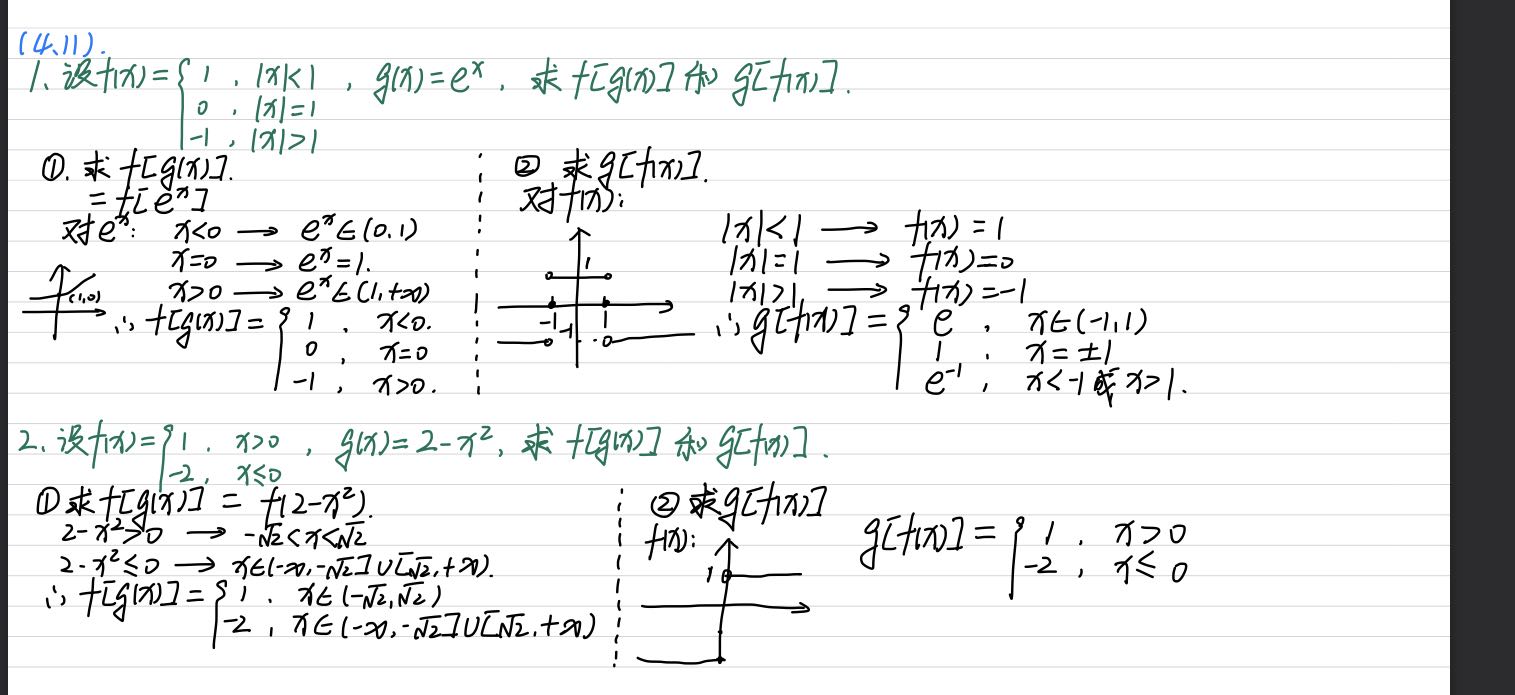 (4.11).
1. 设f(x)={1, |x|<1, g(x)=eˣ, 求f[g(x)]和g[f(x)].
0, |x|=1
-1, |x|>1
①. 求f[g(x)].
=f[eˣ]
对eˣ: x<0 → eˣ∈(0,1)
x=0 → eˣ=1.
x>0 → eˣ∈(1,+∞)
(1,0)
∴ f[g(x)]={1, x<0.
0, x=0
-1, x>0.
② 求g[f(x)].
对f(x):
1
-1 1
-1
|x|<1 → f(x)=1
|x|=1 → f(x)=0
|x|>1 → f(x)=-1
∴ g[f(x)]={e, x∈(-1,1)
1, x=±1
e⁻¹, x<-1或x>1.
2. 设f(x)={1, x>0, g(x)=2-x², 求f[g(x)]和g[f(x)].
-2, x≤0
①求f[g(x)] = f(2-x²).
2-x²>0 → -√2<x<√2
2-x²≤0 → x∈(-∞,-√2]∪[√2,+∞).
∴ f[g(x)]={1, x∈(-√2,√2)
-2, x∈(-∞,-√2]∪[√2,+∞)
②求g[f(x)]
f(x):
1
g[f(x)]={1, x>0
-2, x≤0